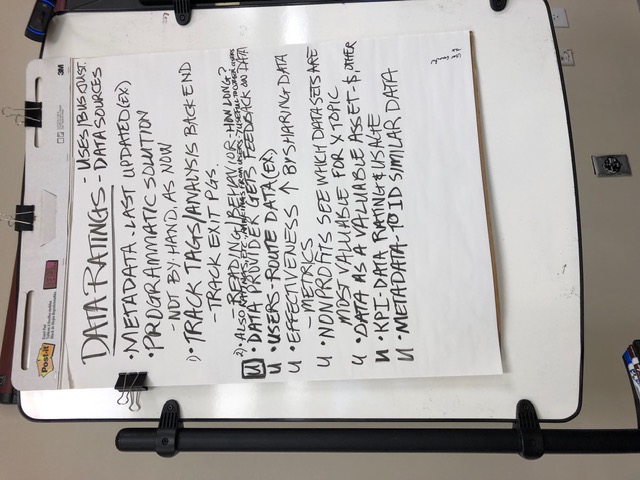 DATA RATINGS - USES/BUS JUST.
- DATA SOURCES
• METADATA - LAST UPDATED (EX)
• PROGRAMMATIC SOLUTION
- NOT BY HAND, AS NOW
1) • TRACK TAGS/ANALYSIS BACK END
- TRACK EXIT PGS.
- READING BEHAVIOR - HOW LONG?
2) • ALSO RATINGS, ETC.
U • DATA PROVIDER GETS FEEDBACK ON DATA
U • USERS - ROUTE DATA (EX)
U • EFFECTIVENESS ↑ BY SHARING DATA
- METRICS
U • NONPROFITS SEE WHICH DATA SETS ARE
MOST VALUABLE FOR X TOPIC
U • DATA AS A VALUABLE ASSET - $, OTHER
U • KPI - DATA RATING & USAGE
U • METADATA - TO ID SIMILAR DATA
3M
Post-it